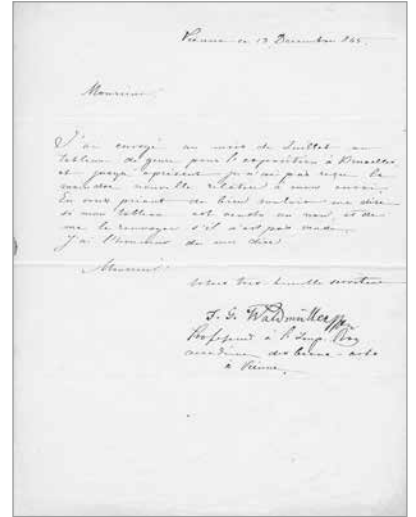 Vienne ce 13 Decembre 845.
Monsieur!
J'ai envoyé au mois de Juillet un
tableau de genre pour l'exposition à Bruxelles,
et jusqu'a présent je n'ai pas reçu la
moindre nouvelle relative à mon envoi.
En vous priant de bien vouloir me dire
si mon tableau est vendu ou non, et de
me le renvoyer s'il n'est pas vendu,
J'ai l'honneur de me dire
Monsieur!
votre très humble serviteur
F. G. Waldmüller
Professeur à l'Imp. Roy.
académie des beaux-arts
à Vienne.